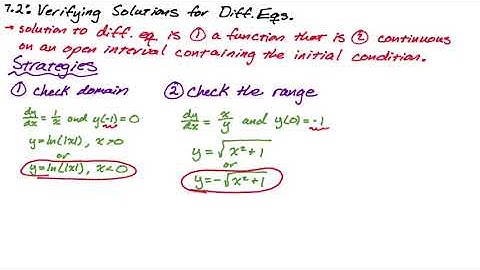 7.2: Verifying Solutions for Diff. Eqs.
→ solution to diff. eq is ① a function that is ② continuous
on an open interval containing the initial condition.
Strategies
① check domain
dy/dx = 1/x and y(-1)=0
y=ln(|x|), x>0
or
y=ln(|x|), x<0
② Check the range
dy/dx = x/y and y(0)=-1
y=√(x²+1)
or
y=-√(x²+1)